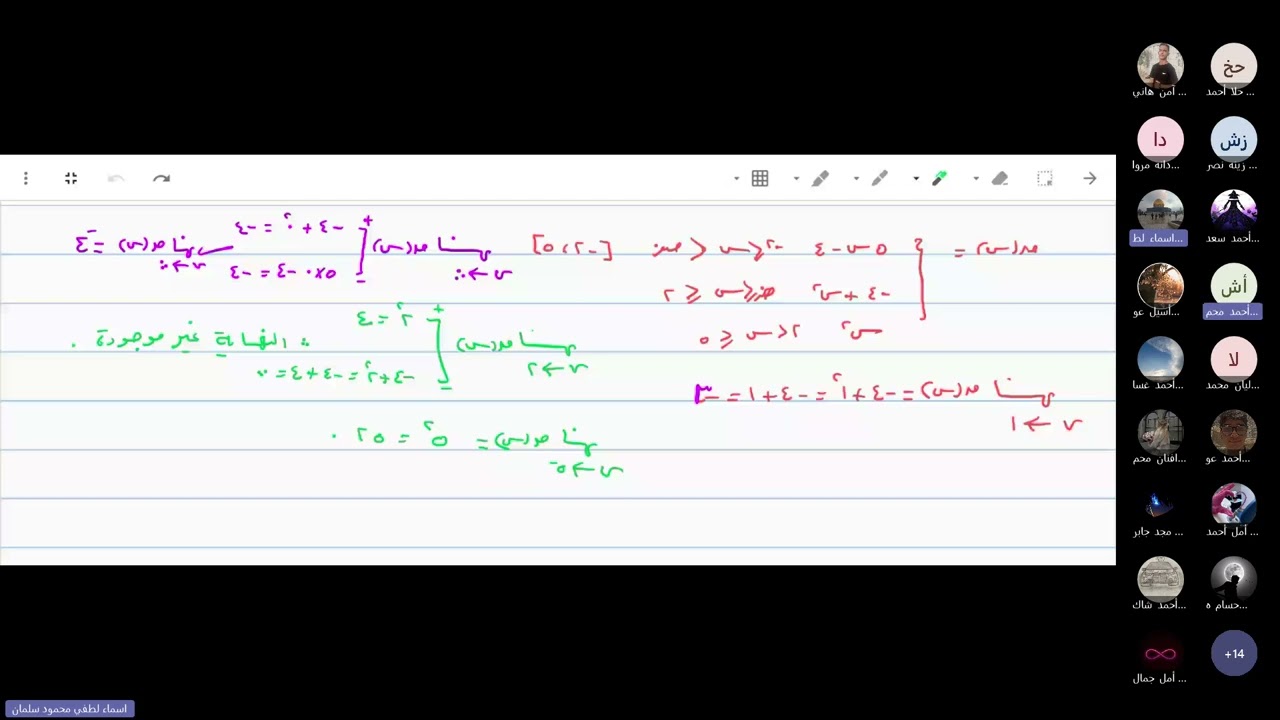 ق(س) = { ٥س - ٤ ، -٢ < س < صفر [-٢، ٥]
-٤ + س٢ صفر ≤ س ≤ ٢
س٢ ٢ < س ≤ ٥
نهــا ق(س) = -٤ + ١٢ = -٤ + ١ = -٣
س ← ١
نهــا ق(س) + -٤ + ٠٢ = -٤
س ← ٠ - ٥×٠ - ٤ = -٤
نهــا ق(س) = -٤
س ← ٠
نهــا ق(س) + ٢٢ = ٤
س ← ٢ - -٤ + ٢٢ = -٤ + ٤ = ٠
∴ النهاية غير موجودة .
نهــا ق(س) = ٥٢ = ٢٥ .
س ← ٥-
أمن هاني ...
حخ
حلا أحمد ...
دا
دانة مروا...
زش
زينة نصر...
اسماء لط...
أحمد سعد...
أسيل عو...
أش
أحمد محم...
أحمد غسا...
لا
ليان محمد...
افنان محم...
أحمد عو...
مجد جابر ...
أمل أحمد...
أحمد شاك...
حسام ه...
أمل جمال ...
+14
اسماء لطفي محمود سلمان